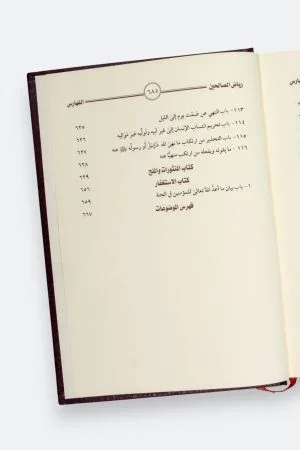 رياض الصالحين
٦٨٥
الفهارس
١١٣- باب النهي عن صمت يوم إلى الليل ٦٢٥
١١٤- باب تحريم انتساب الإنسان إلى غير أبيه وتوليه غير مواليه ٦٢٥
١١٥- باب التحذير من ارتكاب ما نهى الله عز وجل أو رسوله ﷺ عنه ٦٢٧
١١٦- ما يقوله ويفعله من ارتكب منهيًّا عنه ٦٢٨
كتاب المنثورات والملح ٦٢٩
كتاب الاستغفار ٦٥١
١- باب بيان ما أعدَّ الله تعالى للمؤمنين في الجنة ٦٥٩
فهرس الموضوعات ٦٦٧